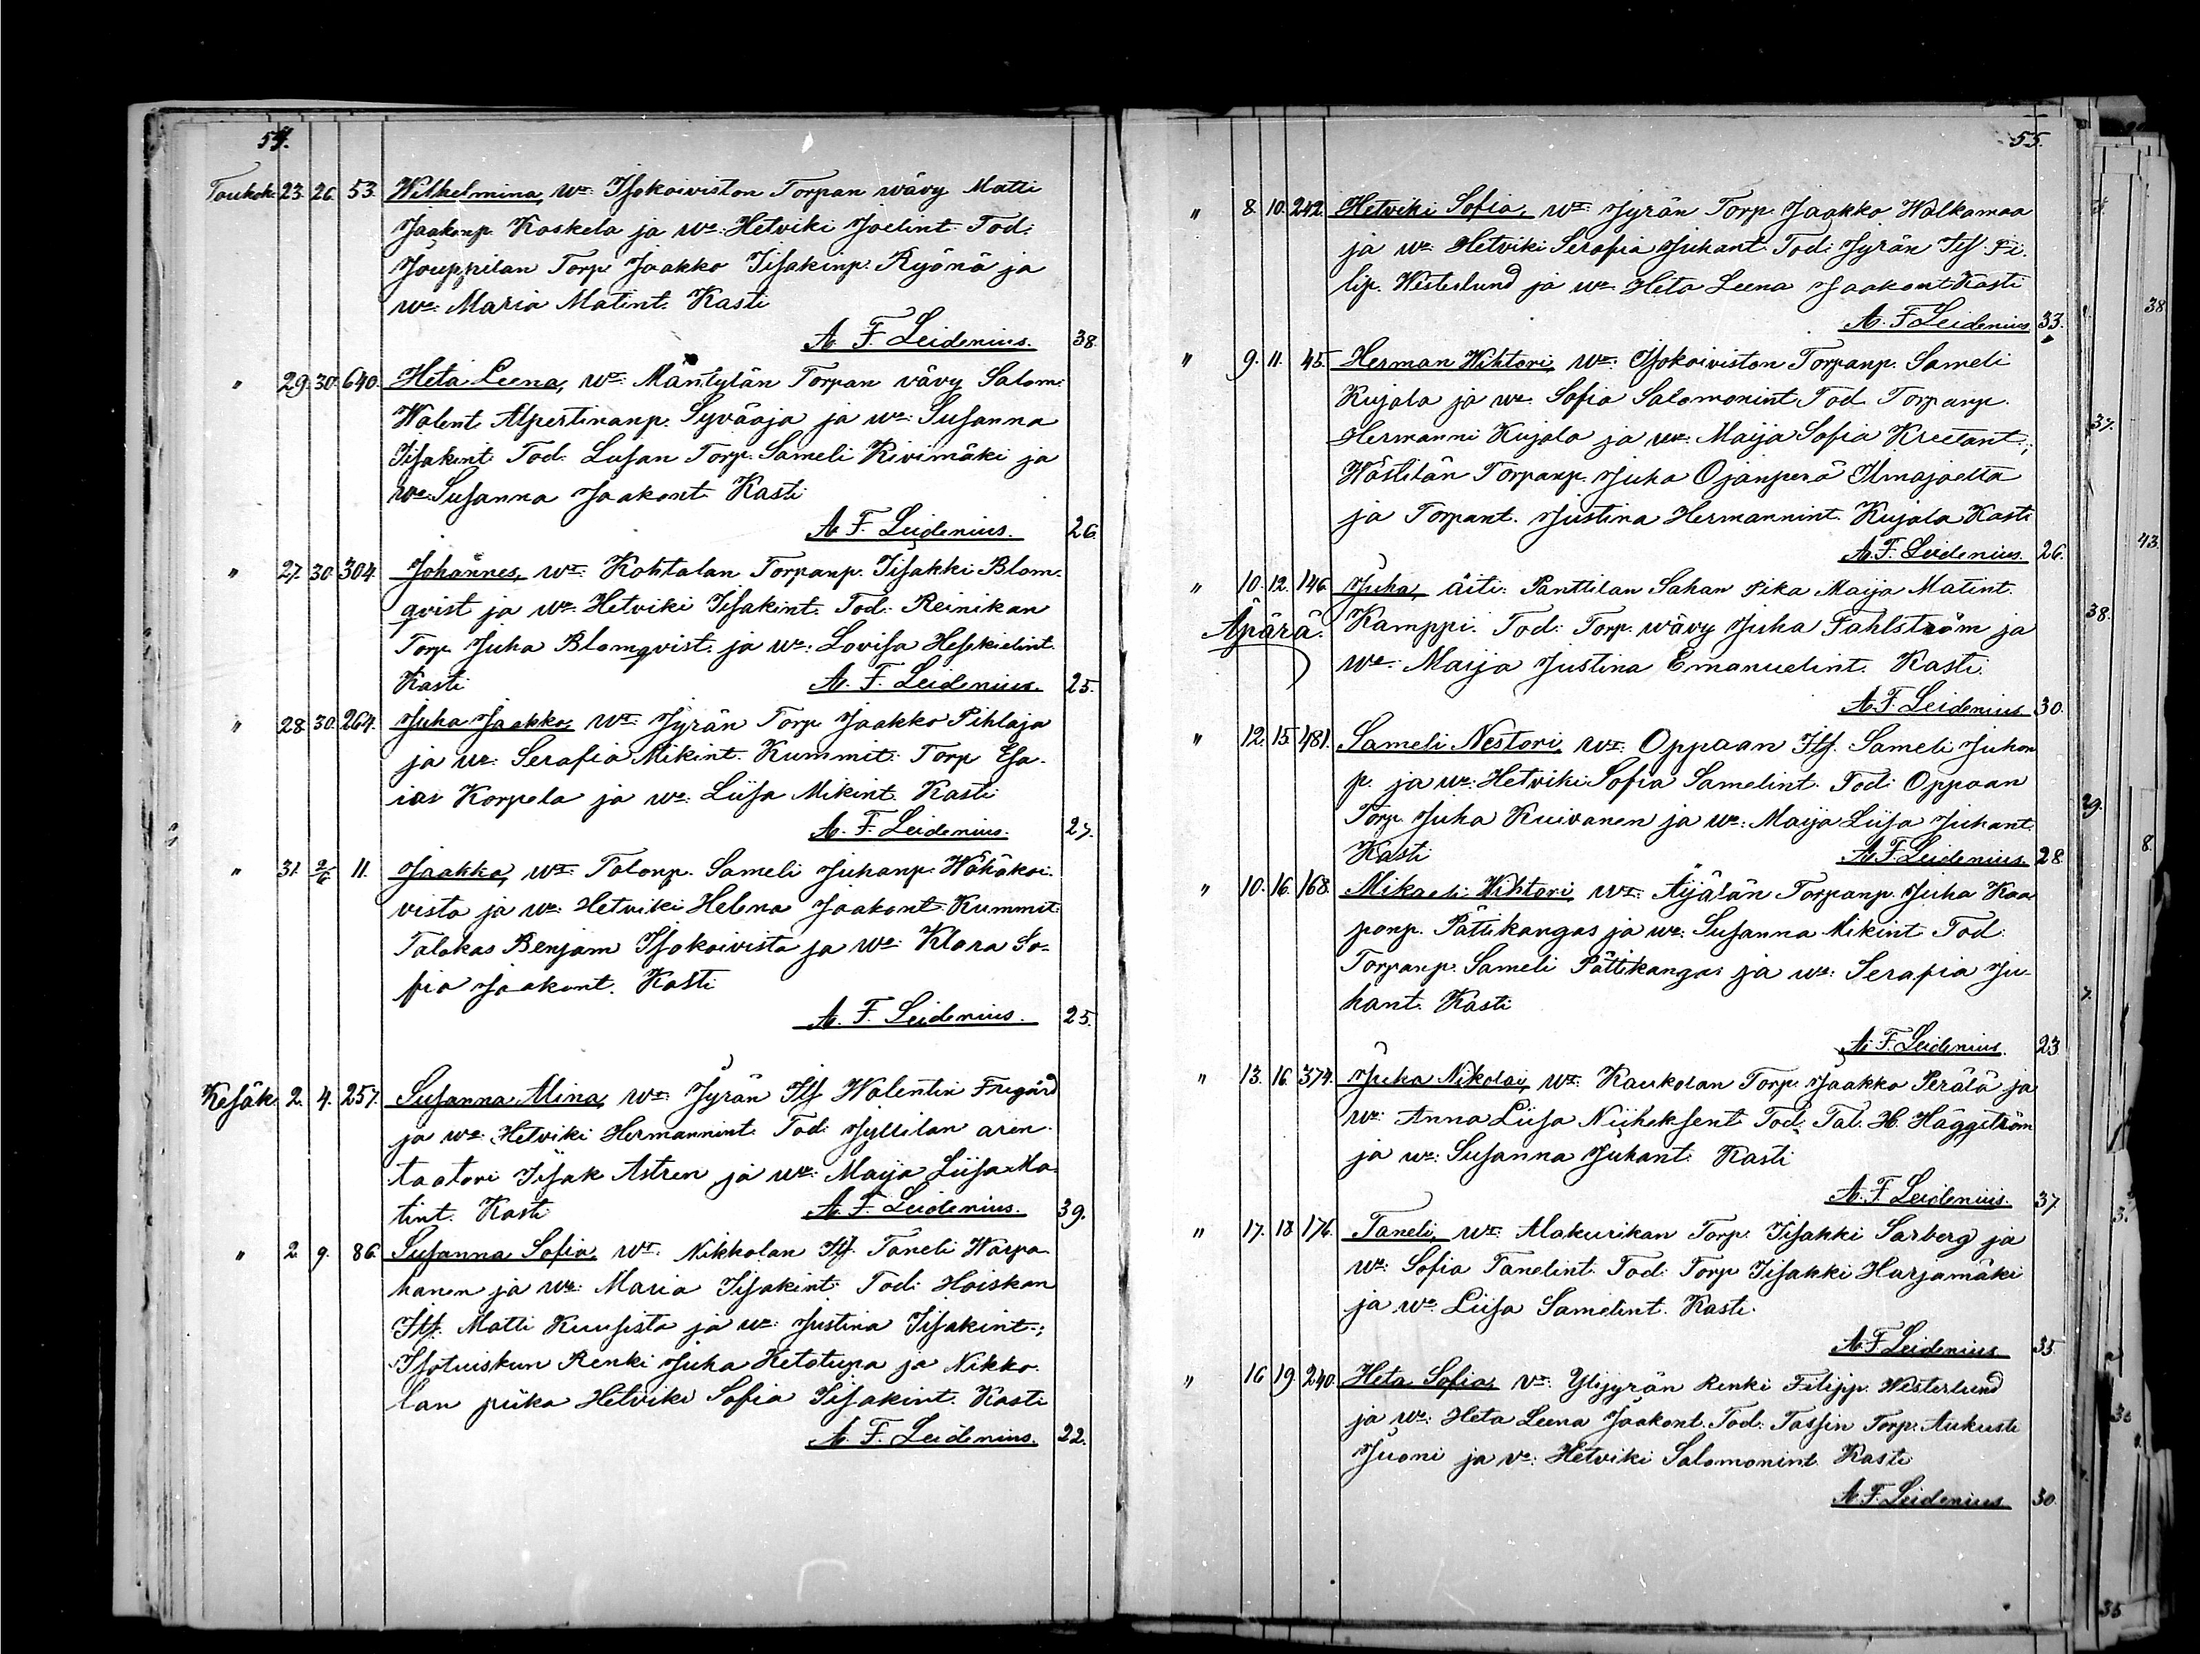 54.
Toukok. 23. 26. 53. Wilhelmina, wt: Isokoiviston Torpan wävy Matti
Jaakonp. Koskela ja wo: Hetviki Joelint. Tod:
Jouppilan Torp. Jaakko Iisakinp. Ryönä ja
wo: Maria Matint. Kasti
A. F. Leidenius. 38.
" 29. 30. 640. Heta Leena, wt: Mäntylän Torpan vävy Salom:
Walent. Alpertinanp. Syväoja ja wo: Susanna
Iisakint. Tod: Lusan Torp. Sameli Kivimäki ja
wo: Susanna Jaakont. Kasti
A. F. Leidenius. 26.
" 27. 30. 304. Johannes, wt: Kohtalan Torpanp. Iisakki Blom-
qvist ja wo: Hetviki Iisakint. Tod: Reinikan
Torp. Juha Blomqvist. ja wo: Lovisa Heskielint.
Kasti A. F. Leidenius. 25.
" 28. 30. 264. Juha Jaakko, wt: Jyrän Torp. Jaakko Pihlaja
ja wo: Serafia Mikint. Kummit: Torp. Esa-
ias Korpela ja wo: Liisa Mikint. Kasti
A. F. Leidenius. 27.
" 31. 2/6 11. Jaakko, wt: Talonp. Sameli Juhanp. Wähäkoi-
visto ja wo: Hetviki Helena Jaakont. Kummit:
Talokas Benjam Isokoivisto ja wo: Klara So-
fia Jaakont. Kasti
A. F. Leidenius. 25.
Kesäk. 2. 4. 257. Susanna Alina, wt: Jyrän Its. Walentin Frigård
ja wo: Hetviki Hermannint. Tod: Jyllilan aren-
taatori Iisak Astren ja wo: Maija Liisa Ma-
tint. Kasti A. F. Leidenius. 39.
" 2. 9. 86. Susanna Sofia, wt: Nikkolan Its. Taneli Warpa-
hanen ja wo: Maria Iisakint. Tod: Hoiskan
Its. Matti Kuusisto ja wo: Justina Iisakint.;
Isotuiskun Renki Juha Ketotupa ja Nikko-
lan piika Hetviki Sofia Iisakint. Kasti
A. F. Leidenius. 22.
55.
" 8. 10. 242. Hetviki Sofia, wt: Jyrän Torp. Jaakko Walkamaa
ja wo: Hetviki Serafia Juhant. Tod: Jyrän Its. Fi-
lip. Westerlund ja wo: Heta Leena Jaakont Kasti
A. F. Leidenius 33.
" 9. 11. 45. Herman Wihtori, wt: Isokoiviston Torpanp. Sameli
Kujala ja wo: Sofia Salomonint. Tod. Torpanp.
Hermanni Kujala ja wo: Maija Sofia Kreetant.;
Wästilän Torpanp. Juha Ojanperä Ilmajoelta
ja Torpant. Justina Hermannint. Kujala Kasti
A. F. Leidenius. 26.
" 10. 12. 146. Juha, äiti: Panttilan Sahan Pika Maija Matint.
Äpärä. Kamppi. Tod: Torp. wävy Juha Fahlström ja
wo: Maija Justina Emanuelint. Kasti.
A. F. Leidenius 30.
" 12. 15. 481. Sameli Nestori, wt: Oppaan Its. Sameli Juhan
p. ja wo: Hetviki Sofia Samelint. Tod: Oppaan
Torp. Juha Kuivanen ja wo: Maija Liisa Juhant.
Kasti A. F. Leidenius. 28.
" 10. 16. 168. Mikaeli Wihtori wt: Äijälän Torpanp. Juha Kaa-
ponp. Pättikangas ja wo: Susanna Mikint. Tod:
Torpanp. Sameli Pättikangas ja wo: Serafia Ju-
hant. Kasti
A. F. Leidenius. 23
" 13. 16. 374. Juha Nikolai, wt: Kaukolan Torp. Jaakko Perälä ja
wo: Anna Liisa Tod: Tal. H. Häggström
ja wo: Susanna Juhant. Kasti
A. F. Leidenius. 37.
" 17. 18. 176. Taneli, wt: Alakurikan Torp. Iisakki Sarberg ja
wo: Sofia Tanelint. Tod: Torp. Iisakki Harjamäki
ja wo: Liisa Samelint. Kasti.
A. F. Leidenius 35.
" 16. 19. 240. Heta Sofia, vt: Ylijyrän Renki Filipp. Westerlund
ja wo: Heta Leena Jaakont. Tod: Tassin Torp. Aukusti
Juoni ja vo: Hetviki Salomonint. Kasti
A. F. Leidenius 30.